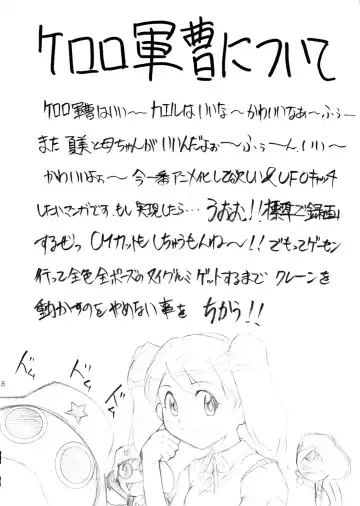 ケロロ軍曹について
ケロロ軍曹はいい〜カエルはいいな〜かわいいなぁ〜ふぅー
また夏美と母ちゃんがいいんだよぉ〜ふぅーん、いい〜
かわいいよぉ〜 今一番アニメ化してほしい&UFOキャッチ
したいマンガです。もし実現したら…うおお!!標準で録画
するぜっ CMカットもしちゃうもんね〜!! でもってゲーセン
行って全色全ポーズのヌイグルミゲットするまでクレーンを
動かすのをやめない事を ちかう!!
ズム
ズム
8